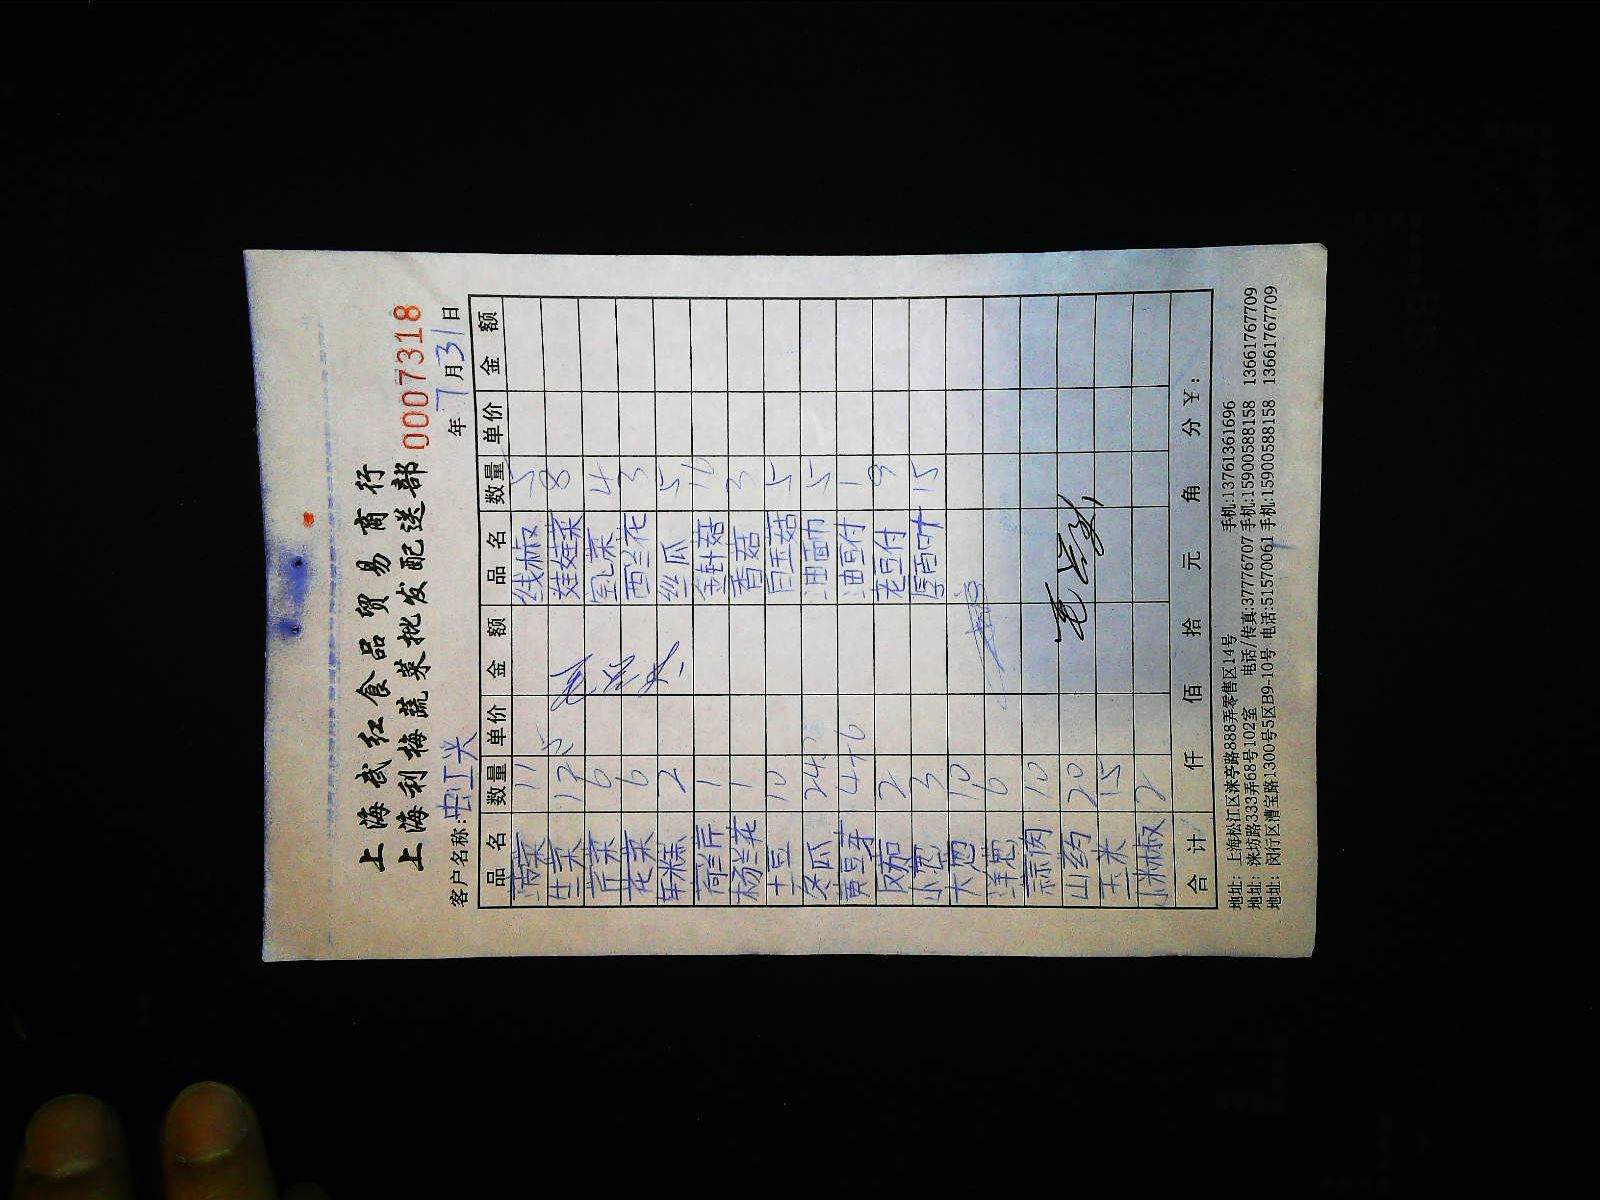 上海武红食品贸易商行
上海利梅蔬菜批发配送部
0007318
客户名称:虫工兴 年 7月31日
品名 数量 单价 金额 品名 数量 单价 金额
菠菜 11 线椒 5
生菜 12 娃娃菜 8
芹菜 6 4
花菜 6 西兰花 3
年糕 2 丝瓜 5
荷兰芹 1 金针菇
杨兰花 1 香菇 3
土豆 10 白玉菇 5
冬瓜 油面巾 5
黄豆芽 4+6 油豆付 1
2 老豆付 9
小葱 3 厚百叶 15
大葱 10
洋葱 6
蒜肉 10
山药 20
玉米 15
小米椒 2
合计 仟 佰 拾 元 角 分 ¥:
地址: 上海松江区涞亭路888弄零售区14号 手机:13761361696
地址: 涞坊路333弄68号102室 电话/传真:37776707 手机:15900588158 13661767709
地址: 闵行区漕宝路1300号5区B9-10号 电话:51570061 手机:15900588158 13661767709